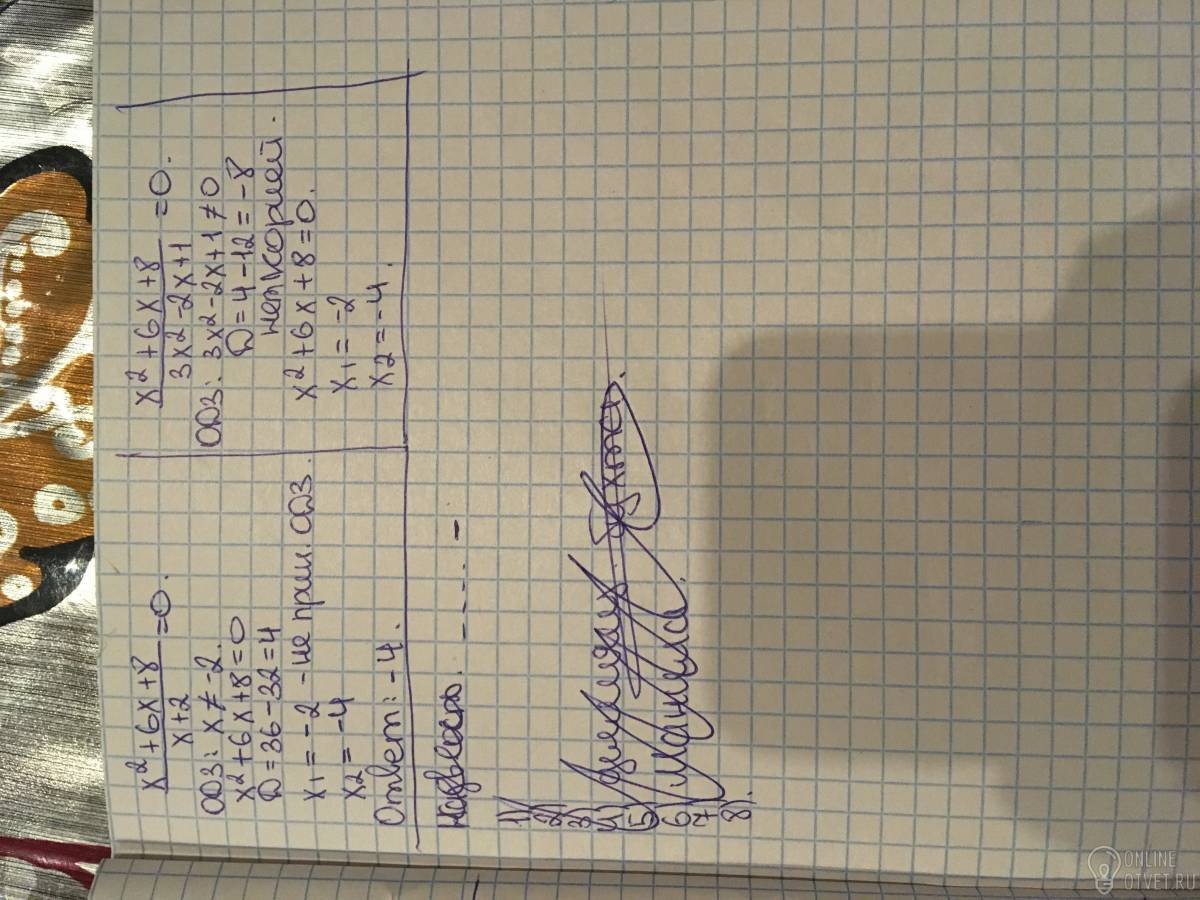 x²+6x+8
x+2
=0.
ОДЗ: x≠-2.
x²+6x+8=0
D=36-32=4
x1=-2 - не прин. ОДЗ.
x2=-4
Ответ: -4.
x²+6x+8
3x²-2x+1
=0.
ОДЗ: 3x²-2x+1≠0
D=4-12=-8
нет корней.
x²+6x+8=0.
x1=-2
x2=-4.
1)
2)
3)
4)
5)
6)
7)
8).
ONLINE
OTVET.RU